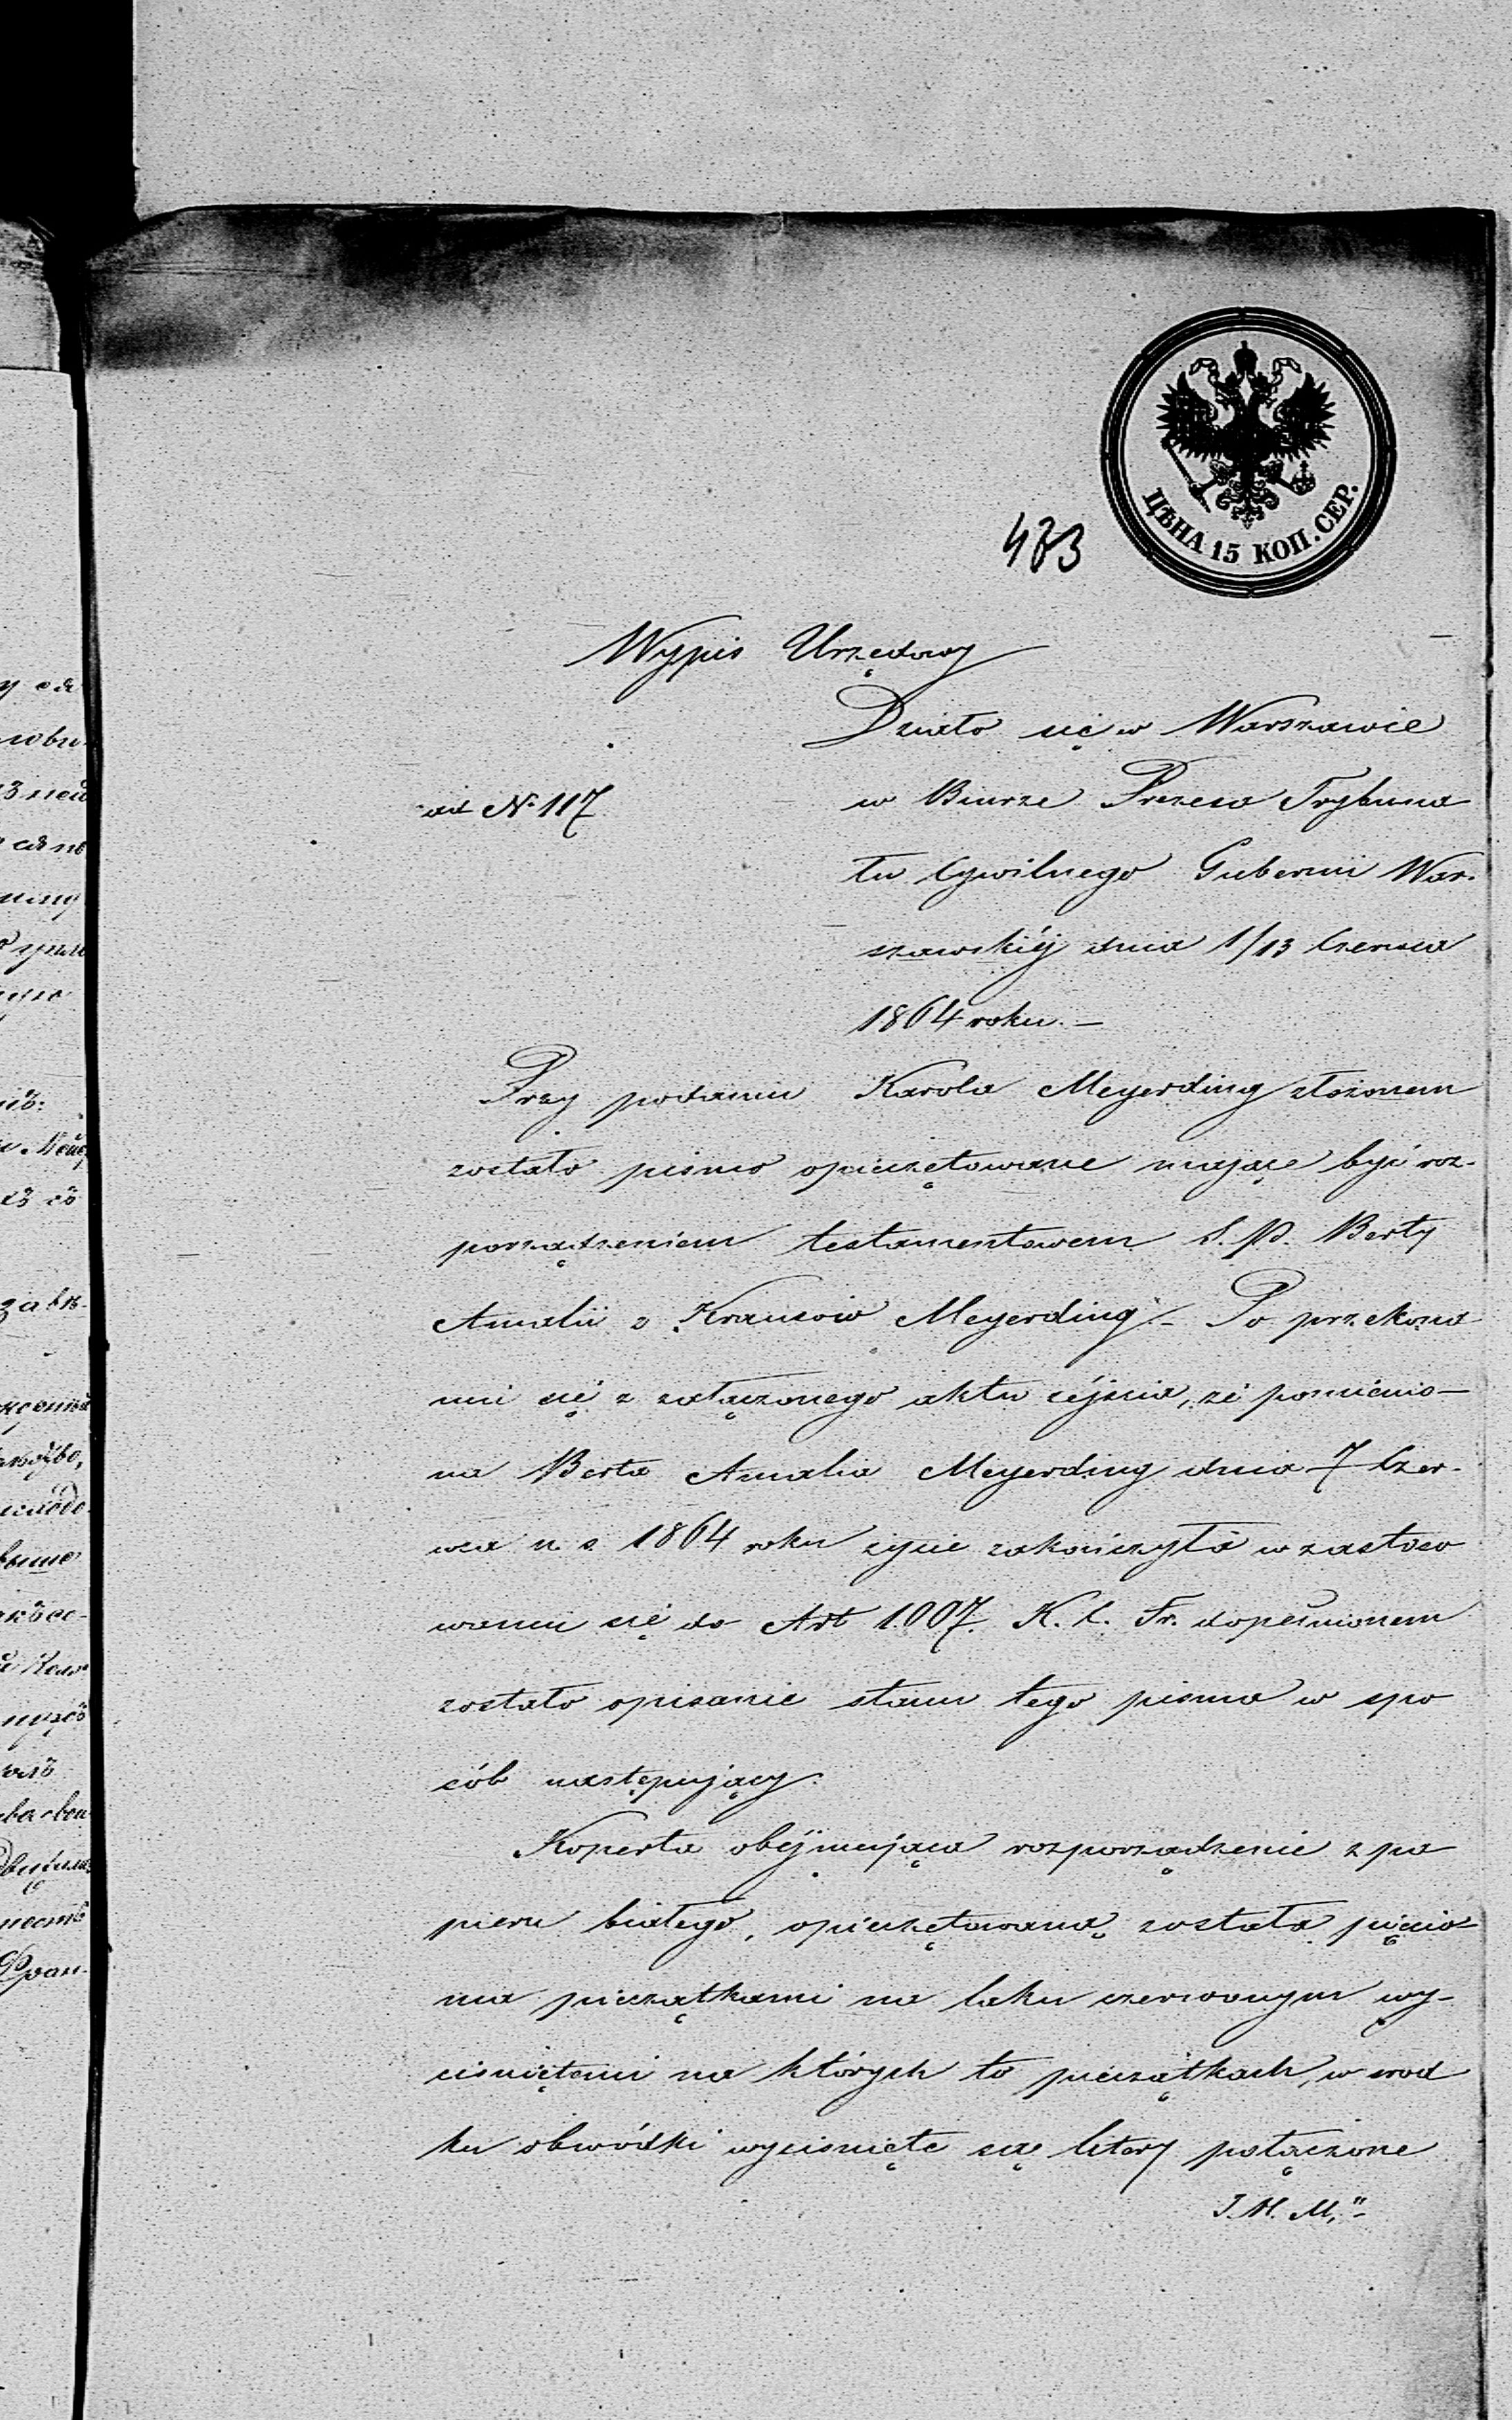 ЦѢНА 15 КОП. СЕР.
473
Wypis Urzędowy
Działo się w Warszawie
ad N. 117
w Biurze Prezesa Trybuna
łu Cywilnego Gubernii War-
szawskiéj dnia 1/13 Czerwca
1864 roku. —
Przy podaniu Karola Meyerding złożonem
zostało pismo opieczętowane mające być roz-
porządzeniem testamentowem Ś. P. Berty
Amalii z Krausów Meyerding — Po przekona
niu się z załączonego aktu zéjścia, że pomienio—
na Berta Amalia Meyerding dnia 7 Czer-
wca n. s. 1864 roku życie zakończyła w zastoso
waniu się do Art 1.007. K. C. Fr. dopełnionem
zostało opisanie stanu tego pisma w spo
sób następujący.
Koperta obéjmująca rozporządzenie z pa
pieru białego, opieczętowaną została pięcio-
ma pieczątkami na laku czerwonym wy-
ciśniętemi na których to pieczątkach, w środ
ku obwódki wyciśnięte są litery połączone
J. H. M."-